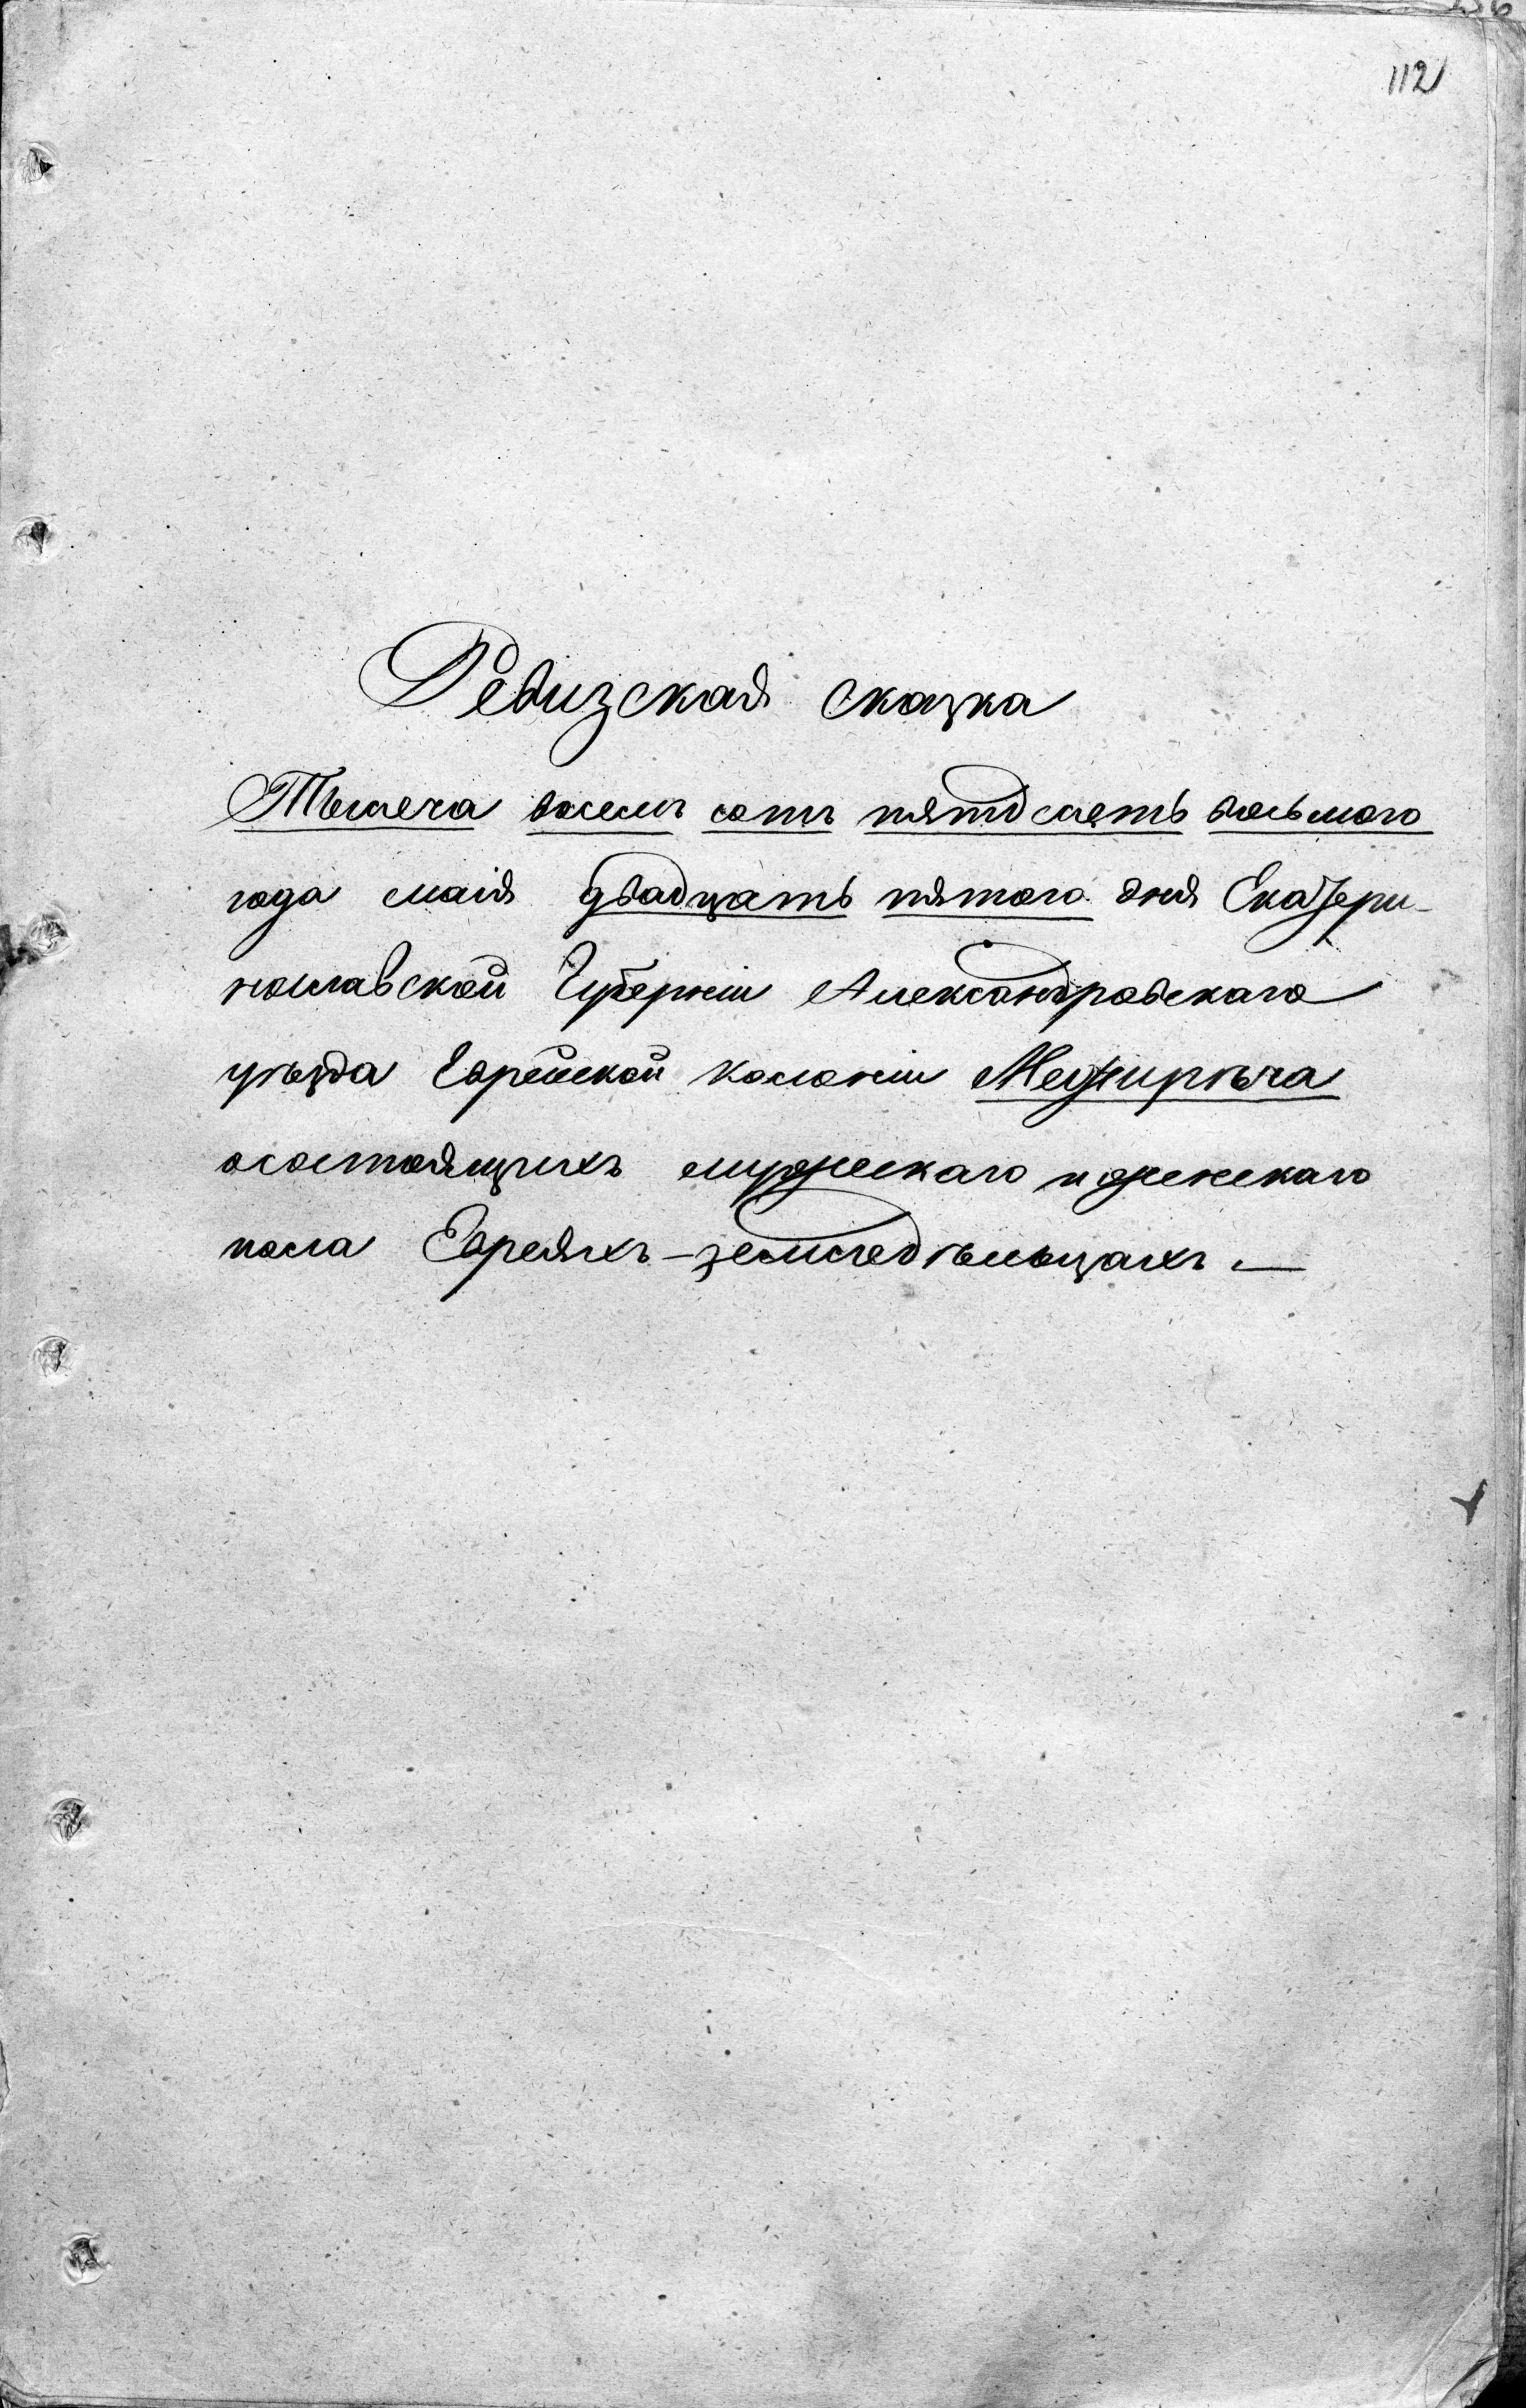 112
Ревизская сказка
Тысеча восемъ сотъ пятдесетъ восьмого
года маія двадцать пятого дня Екатери-
нославской Губерніи Александровскаго
уѣзда Еврейской колоніи Межирѣча
осостоящихъ мужескаго и женскаго
пола Евреяхъ-земледѣльцахъ. —